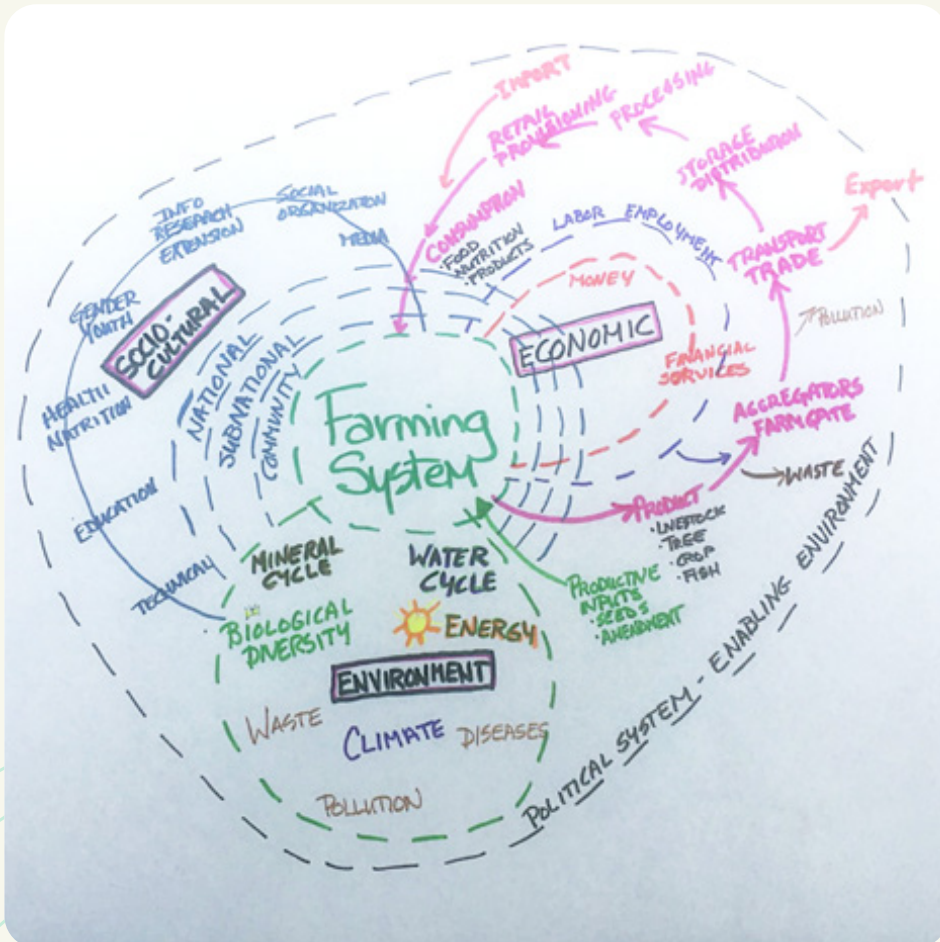 IMPORT
RETAIL
PROVISIONING
PROCESSING
STORAGE
DISTRIBUTION
Export
TRANSPORT
TRADE
POLLUTION
AGGREGATORS
FARMGATE
WASTE
PRODUCT
• LIVESTOCK
• TREE
• CROP
• FISH
CONSUMPTION
• FOOD
NUTRITION
• PRODUCTS
LABOR EMPLOYMENT
MONEY
ECONOMIC
FINANCIAL
SERVICES
INFO
RESEARCH
EXTENSION
SOCIAL
ORGANIZATION
MEDIA
GENDER
YOUTH
SOCIO-
CULTURAL
HEALTH
NUTRITION
EDUCATION
TECHNICAL
NATIONAL
SUBNATIONAL
COMMUNITY
Farming
System
MINERAL
CYCLE
WATER
CYCLE
BIOLOGICAL
DIVERSITY
ENERGY
ENVIRONMENT
WASTE
CLIMATE
DISEASES
POLLUTION
PRODUCTIVE
INPUTS
• SEEDS
• AMENDMENT
POLITICAL SYSTEM - ENABLING ENVIRONMENT